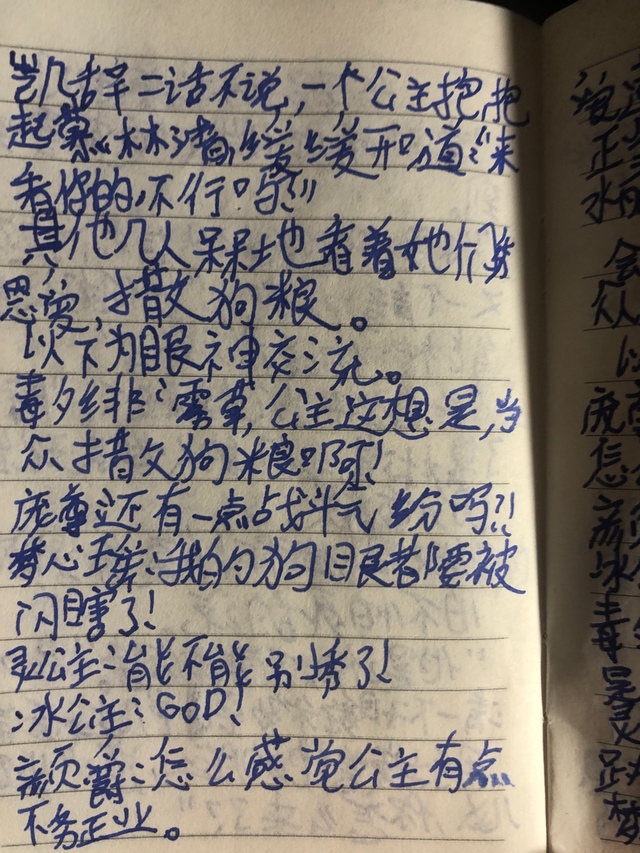 凯择二话不说,一个公主抱,抱
起慕林渚,缓缓开口道:"来
看你的,不行吗?"
其他几人呆呆地看着她们秀
恩爱,撒狗粮。
以下为眼神交流。
毒夕绯:雾草,公主这想是,当
众撒狗粮啊!
庞尊:还有一点战斗气纷吗?!
梦心瑶:我的狗眼都要被
闪瞎了!
灵公主:能不能别秀了!
冰公主:GOD!
颜爵:怎么感觉公主有点
不务正业。